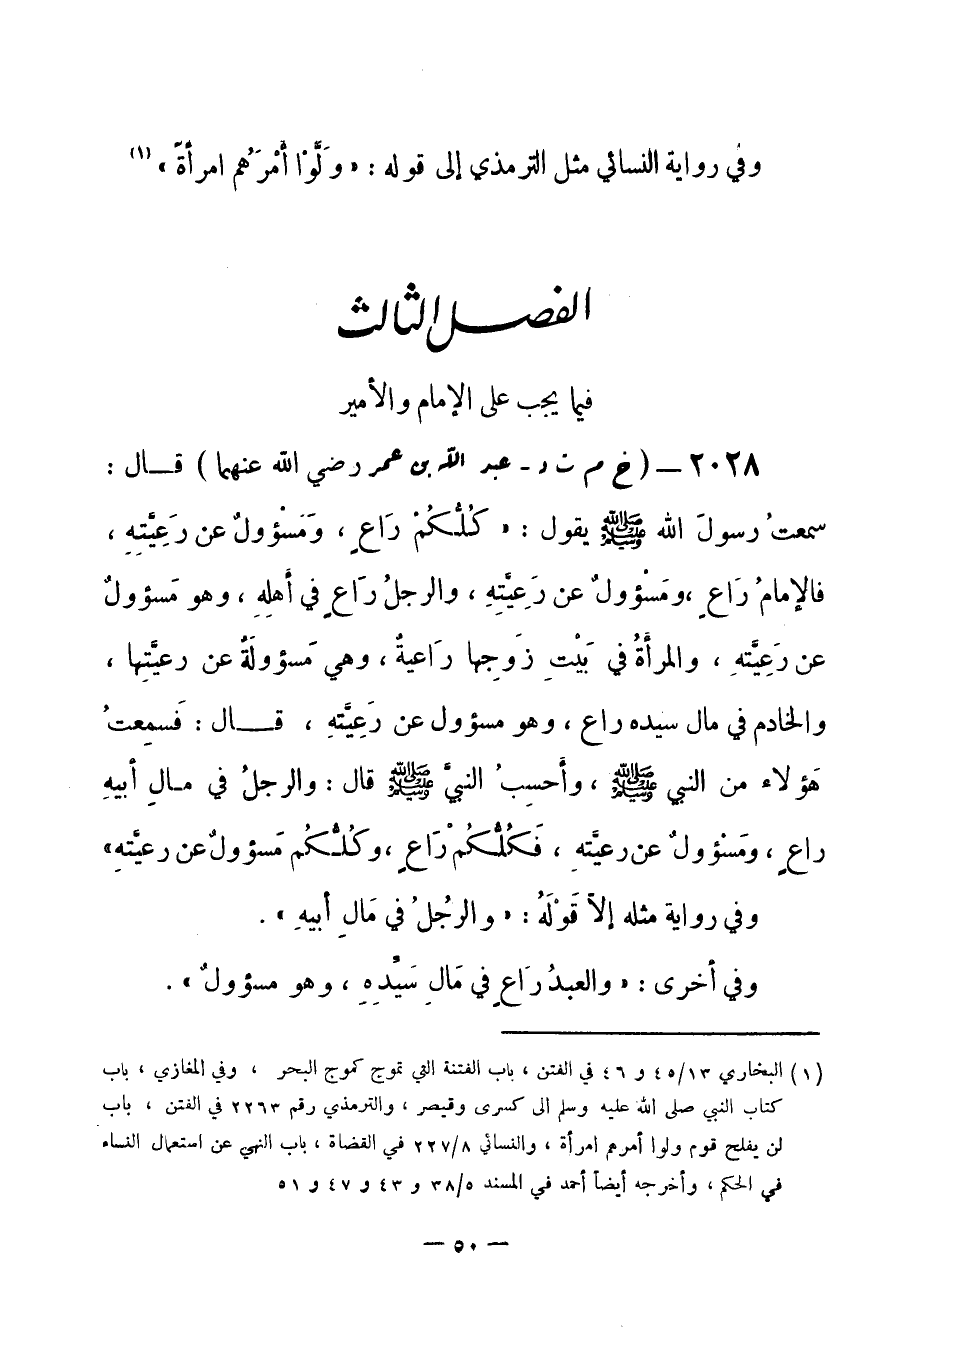 وفي رواية النسائي مثل الترمذي إلى قوله : « وَلَّوْا أَمْرَهُم امرأةً » (١)
الفصل الثالث
فيما يجب على الإمام والأمير
٢٠٢٨ – ( خ م ت د - عبد الله بن عمر رضي الله عنهما ) قـــال :
سمعتُ رسولَ الله ﷺ يقول : « كُلُّكُمْ رَاعٍ ، وَمَسْؤولٌ عن رَعِيَّتِهِ ،
فالإمامُ رَاعٍ ، ومَسْؤولٌ عن رَعِيَّتِهِ ، والرجلُ رَاعٍ في أَهلِهِ ، وهو مَسؤولٌ
عن رَعِيَّتِهِ ، والمرأَةُ في بَيْتِ زَوجِها رَاعيةٌ ، وهي مَسؤولَةٌ عن رعيَّتِها ،
والخادم في مال سيده راعٍ ، وهو مسؤول عن رَعِيَّتِهِ ، قـــال : فَسمِعتُ
هَؤلاء من النبي ﷺ ، وأَحسِبُ النبيَّ ﷺ قال : والرجلُ في مـالِ أَبيهِ
راعٍ ، ومَسْؤولٌ عن رعيَّتِهِ ، فَكُلُّكُمْ رَاعٍ ، وكُلُّكُم مَسؤولٌ عن رعيَّتِهِ »
وفي رواية مثله إلاّ قَوْلَهُ : « والرجُلُ في مَالِ أبيهِ » .
وفي أخرى : « والعبدُ رَاعٍ في مَالِ سَيِّدِهِ ، وهو مسؤولٌ » .
(١) البخاري ٤٥/١٣ و ٤٦ في الفتن ، باب الفتنة التي تموج كموج البحر ، وفي المغازي ، باب
كتاب النبي صلى الله عليه وسلم الى كسرى وقيصر ، والترمذي رقم ٢٢٦٣ في الفتن ، باب
لن يفلح قوم ولوا أمرهم امرأة ، والنسائي ٢٢٧/٨ في القضاة ، باب النهي عن استعمال النساء
في الحكم ، وأخرجه أيضاً أحمد في المسند ٣٨/٥ و ٤٣ و ٤٧ و ٥١
– ٥٠ –